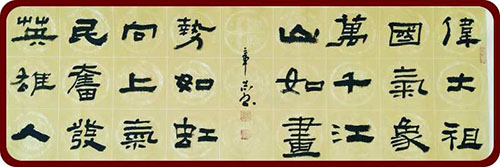 偉大祖
國氣象
萬千江
山如畫
英雄人
民奮發
向上氣
勢如虹